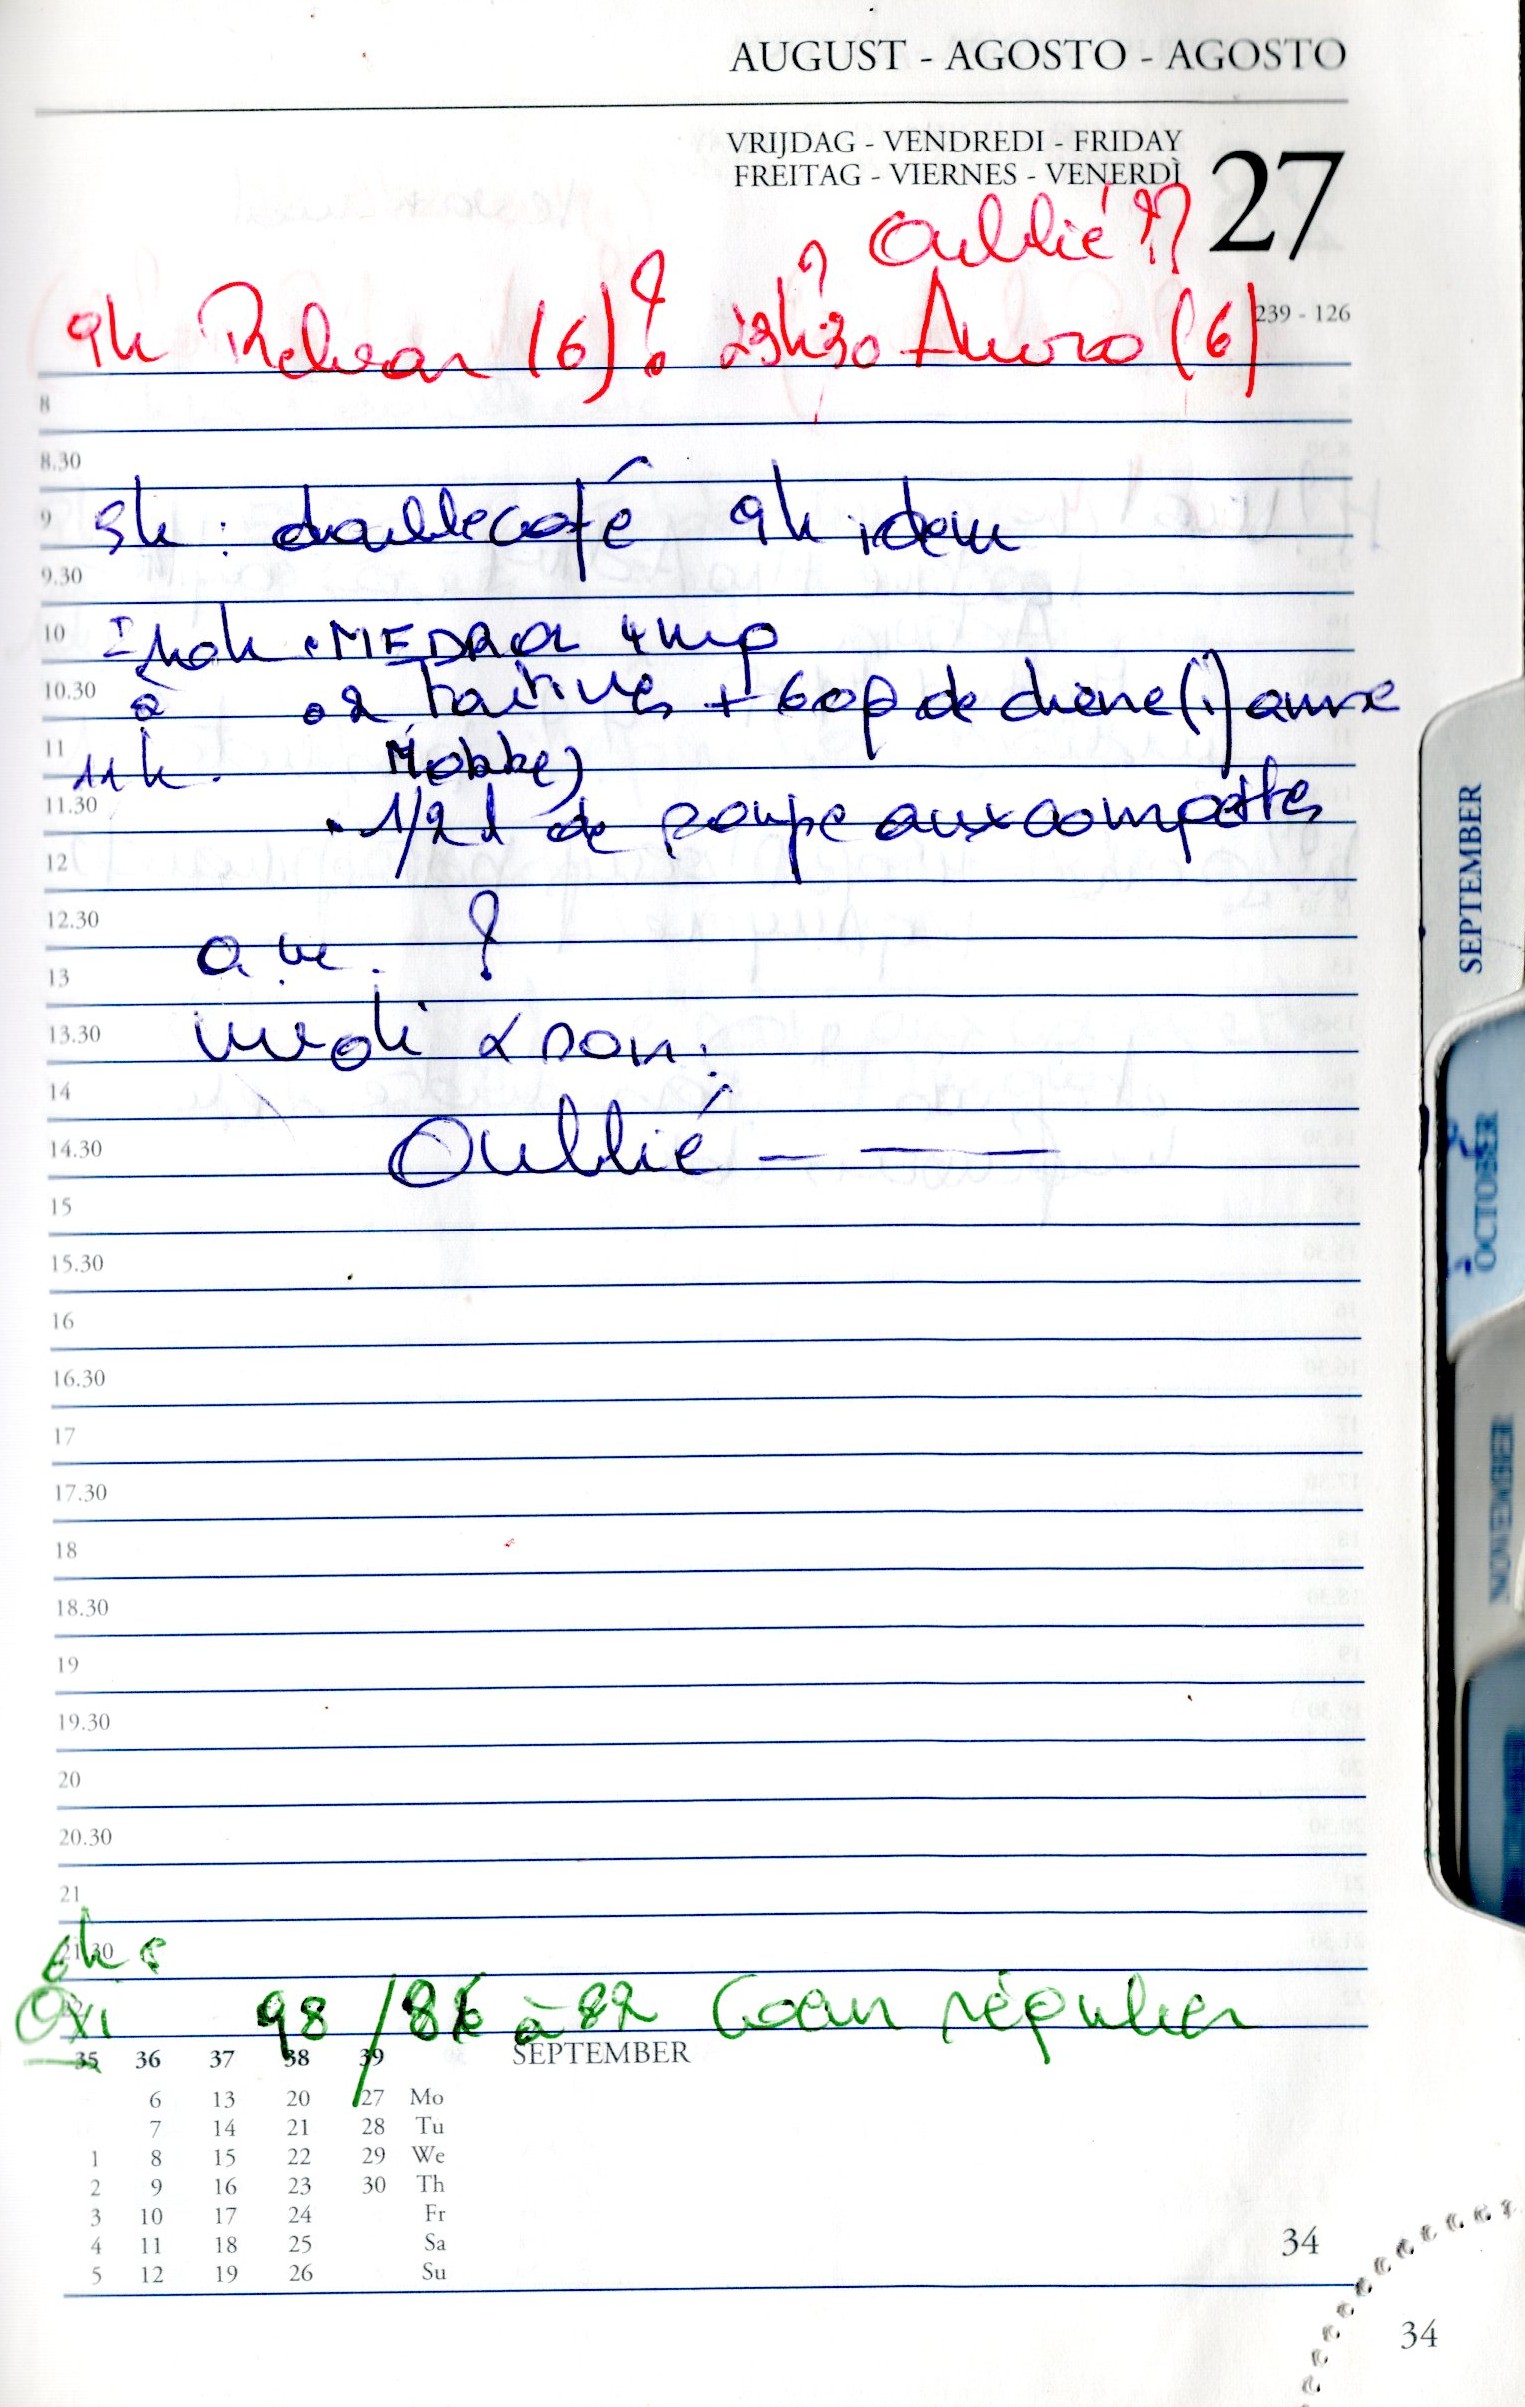 AUGUST - AGOSTO - AGOSTO
VRIJDAG - VENDREDI - FRIDAY
FREITAG - VIERNES - VENERDÌ
27
Oublié ??
239 - 126
9h Relvar (6)? 23h30 Anoro (6)
8
8.30
9 5h : double café 9h idem
9.30
10 10h • MEDROL 4 mg
10.30 à • 2 tartines + 60g de chèvre (!) aux
11 11h.
11.30 • 1/2 l de soupe aux
12
12.30
a.m. ?
13
13.30 midi & soir :
14
14.30 Oublié - —
15
15.30
16
16.30
17
17.30
18
18.30
19
19.30
20
20.30
21
21.30
6h :
Oxi 98 / à 82 Coeur régulier
35 36 37 38 39 SEPTEMBER
6 13 20 27 Mo
7 14 21 28 Tu
1 8 15 22 29 We
2 9 16 23 30 Th
3 10 17 24 Fr
4 11 18 25 Sa
5 12 19 26 Su
34
34
SEPTEMBER
OCTOBER
NOVEMBER